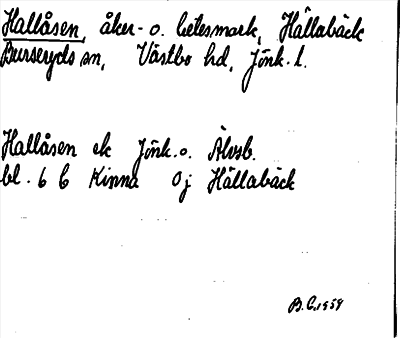 Hallåsen, åker- o. betesmark, Hållabäck
Burseryds sn, Västbo hd, Jönk. l.
Hallåsen ek Jönk. o. Älvsb.
bl. 6 C Kinna 0j Hållabäck
B.C. 1959